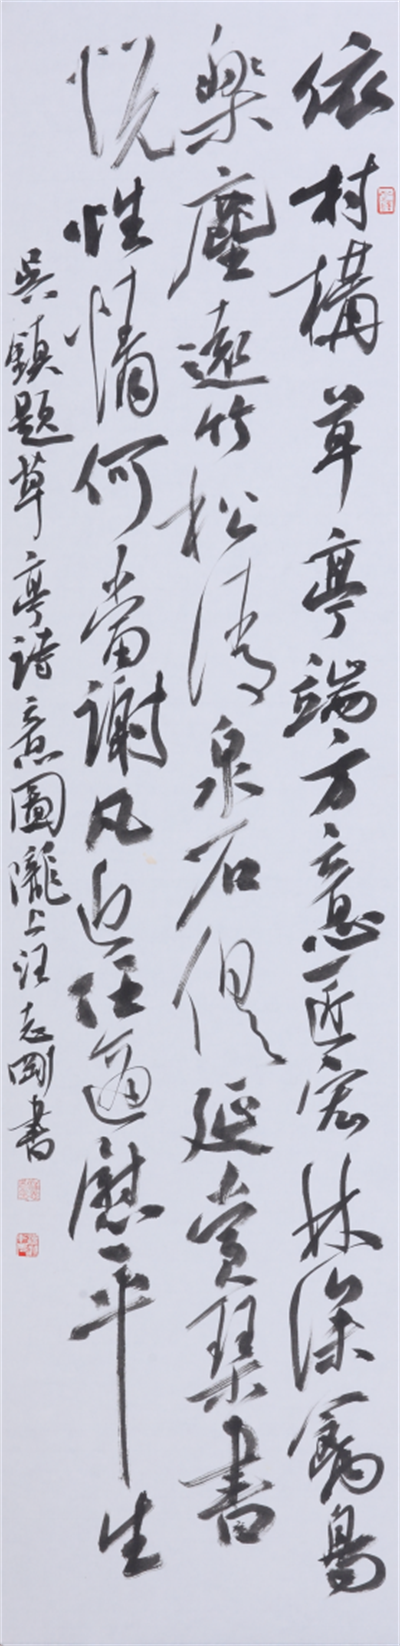 依村構草亭端方意匠宏林深禽鳥
樂塵遠竹松清泉石供延賞琴書
悦性情何當謝凡近任適慰平生
吳鎮題草亭詩意圖隴上汪志剛書